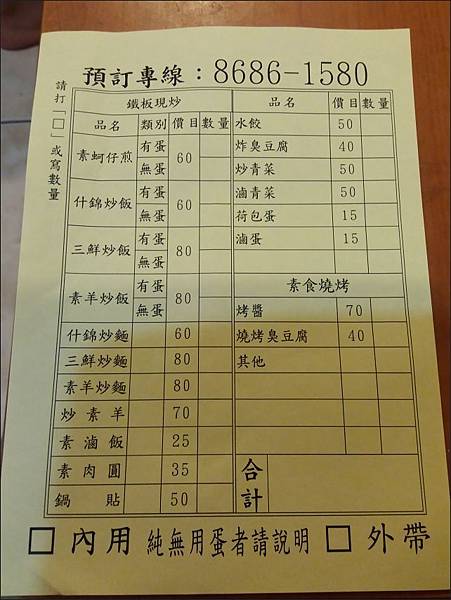 預訂專線：8686-1580
請打「□」或寫數量
鐵板現炒
品名 類別 價目 數量
素蚵仔煎 有蛋 無蛋 60
什錦炒飯 有蛋 無蛋 60
三鮮炒飯 有蛋 無蛋 80
素羊炒飯 有蛋 無蛋 80
什錦炒麵 60
三鮮炒麵 80
素羊炒麵 80
炒素羊 70
素滷飯 25
素肉圓 35
鍋貼 50
品名 價目 數量
水餃 50
炸臭豆腐 40
炒青菜 50
滷青菜 50
荷包蛋 15
滷蛋 15
素食燒烤
烤醬 70
燒烤臭豆腐 40
其他
合計
□ 內用 純無用蛋者請說明 □ 外帶